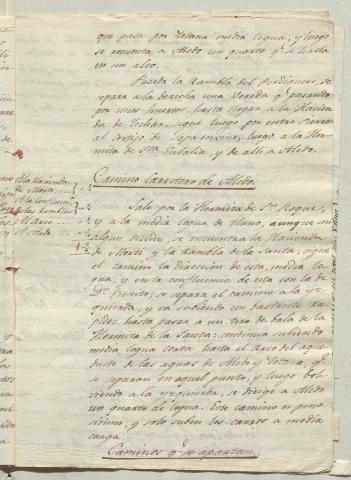 que pasa por Totana media legua; y luego
se remonta a Aledo un quarto qe. se halla
en un alto.
Pasada la Rambla del
separa a la derecha una Vereda qe. pasando
por unos huertos hasta llegar a la Hacien
da de sigue luego por entre Sierras
al cortijo de luego a la Her
mita de Sta. Eulalia, y de alli a Aledo.
Camino Carretero de Aledo.
Sale por la Hermita de Sn. Roque,
y a la media legua de llano, aunque con
algun declive, se encuentra la Hacienda
de Marti y la Rambla de la Santa; sigue
el camino la direccion de esta, media le
gua, y en la confluencia de esta con la de
Dn. Benito, se separa el camino a la yz
quierda, y va subiendo con bastante ra
pidez hasta pasar a un tiro de bala de la
Hermita de la Santa: continua subiendo
media legua corta hasta el Arco del aque
ducto de las aguas de Aledo y Totana, qe.
se separan en aquel punto, y luego bol
viendo a la yzquierda, se dirige a Aledo
un quarto de legua. Este camino es peno
sisimo, y solo suben los carros a media
carga.
Caminos qe. se apartan
A la Hacienda
de Marti
A la confluencia
de las Ramblas
Al Arco
A Aledo